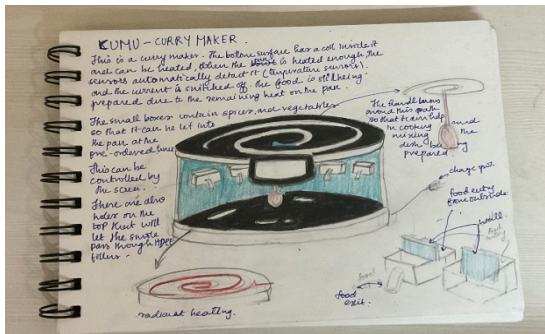 KUMU - CURRY MAKER.
This is a curry maker. The bottom surface has a coil inside it
and can be heated, when the pan is heated enough the
sensors automatically detect it (temperature sensors).
and the current is switched off the food is still being
prepared due to the remaining heat on the pan.
The small boxes contain spices and vegetables
so that it can be let into
the pan at the
pre-ordered time
This can be
controlled by
the screen.
There are also
holes on the
top that will
let the smoke
pass through HDPE
filters.
The handle turns
around this path
so that it can help
in cooking and
mixing the
dish being
prepared
charge port.
food entry
from outside
wall.
food
food exit.
radiant heating.